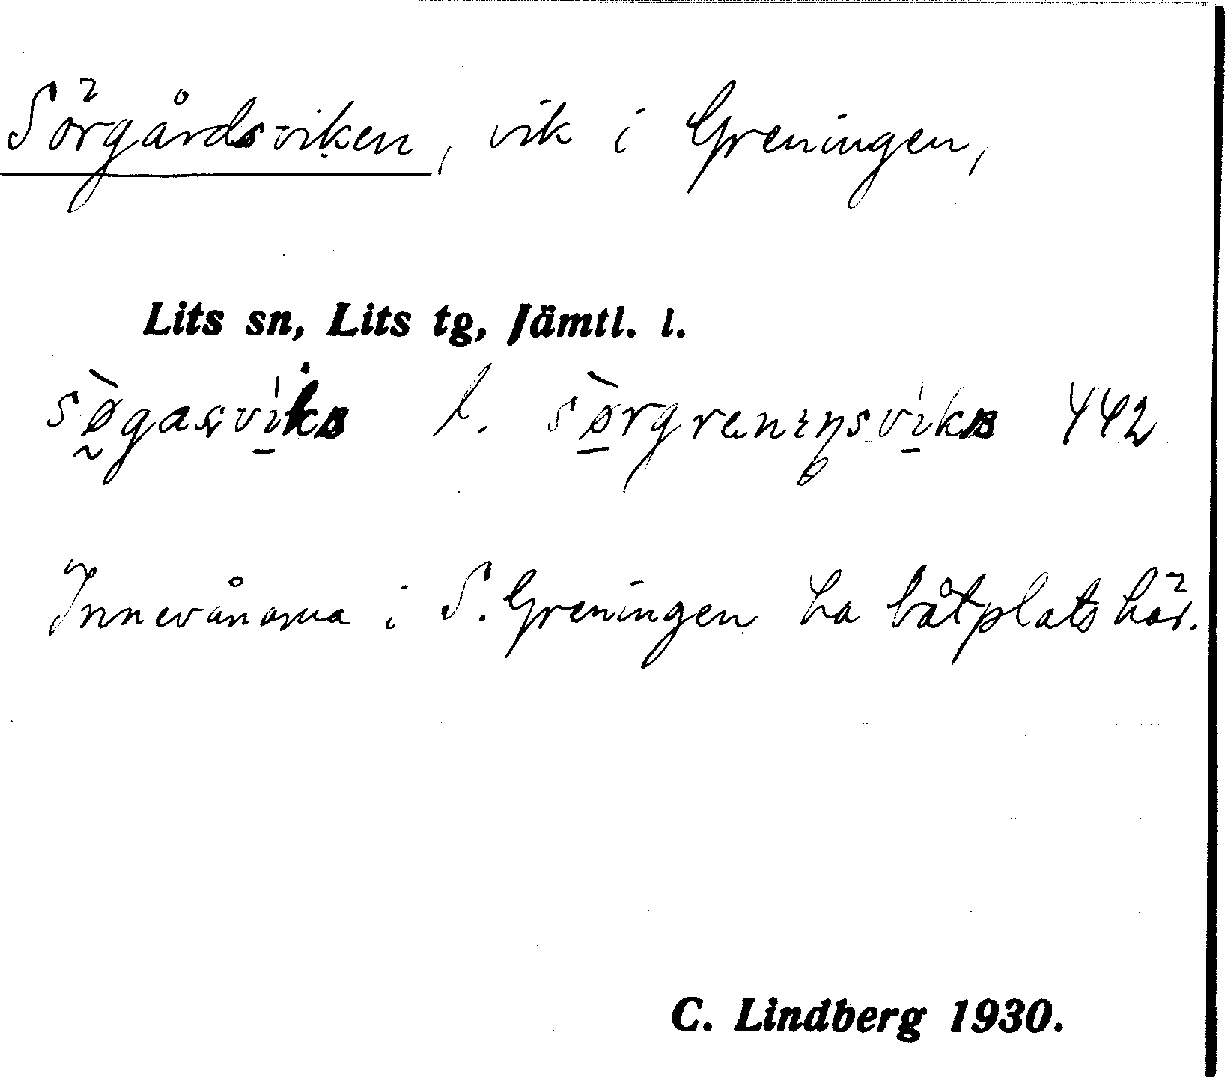 Sörgårdsviken, vik i Greningen,
Lits sn, Lits tg, Jämtl. l.
l. 442
Innevånarna i S. Greningen ha båtplats här.
C. Lindberg 1930.